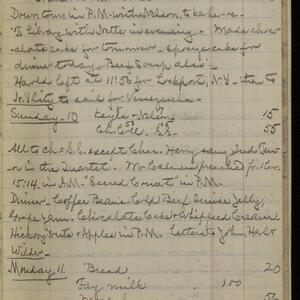 Down town in P.M. with Nelson, to bake-re-
To Library with Nette in evening - Made choc-
olate cake for tomorrow - sponge cake for
dinner today - Beef Soup also -
Harold left at 11:50 for Lockport, N.Y. - then to
N.Y. City to sail for Venezuela -
Sunday - 10 15
Ch. S.S. 55
All to Ch & S.S. except Chas. Harry sang
in the Quartet - Mr. preached fr. 1 Cor.
15:14 in A.M. "Sacred Concert" in P.M.
Dinner - Beans, Cold Beef Quince Jelly,
Grape Jam. Chocolate Cake & Whipped Cream
Hickory Nuts & Apples in P.M. Letters to John, Harold
Wilder -
Monday 11. Bread 20
Fay milk 1.00